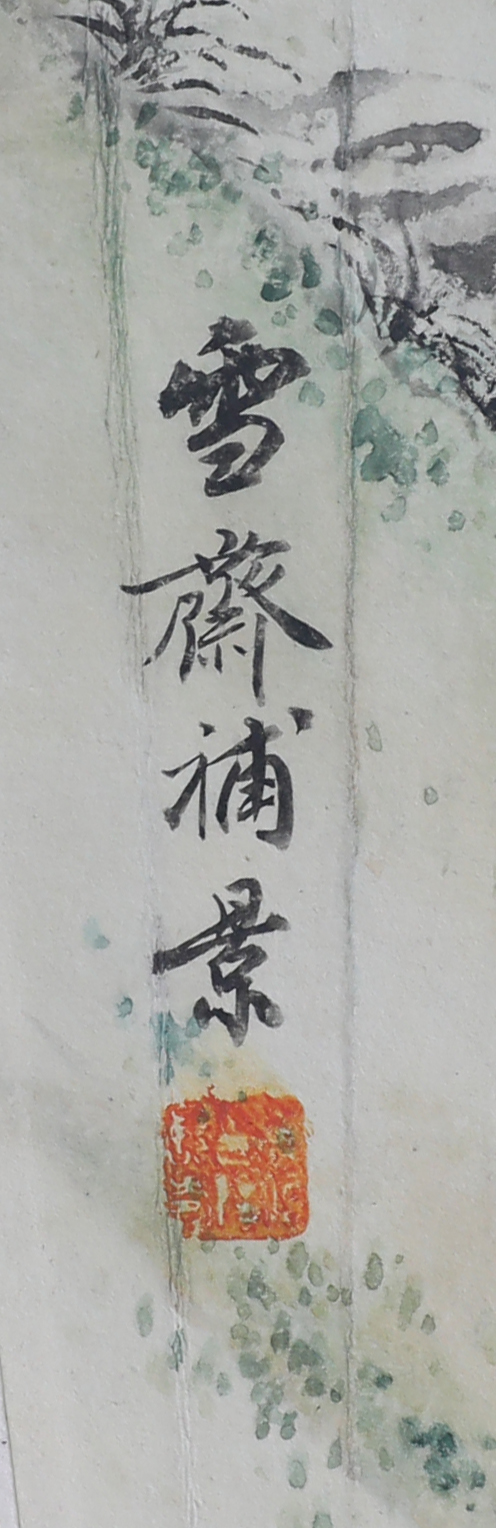 雪齋補景